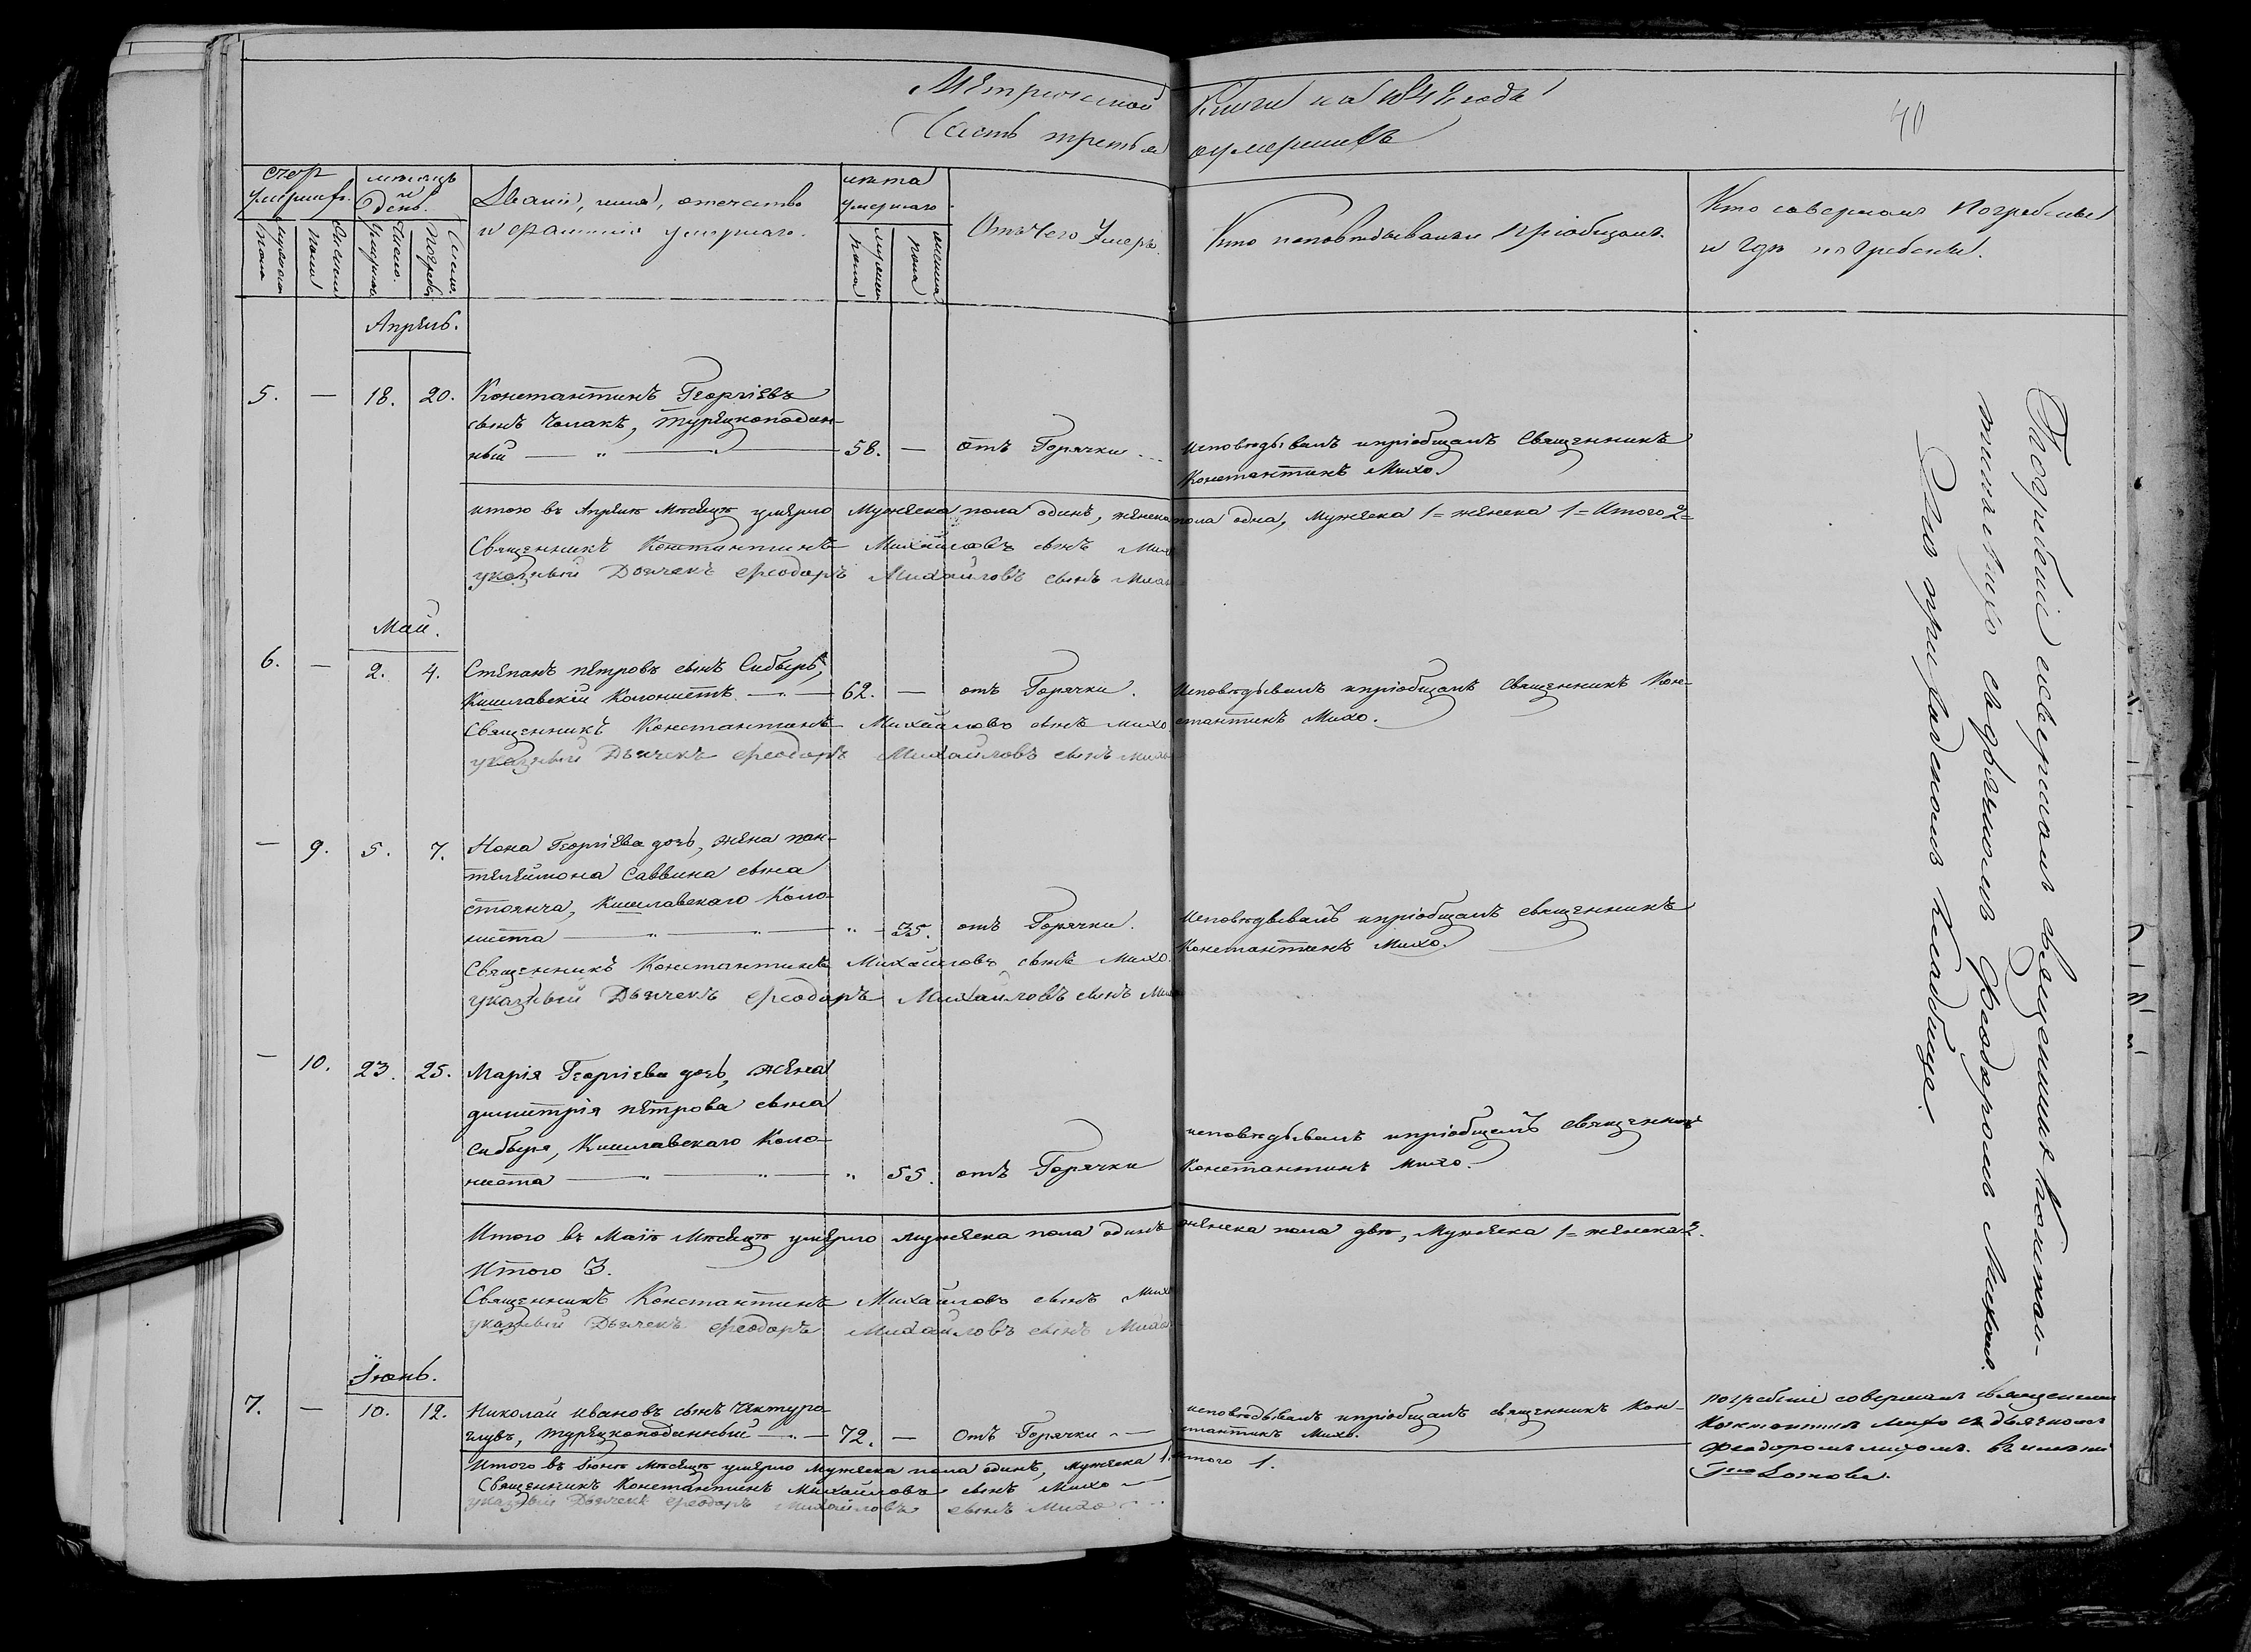 Метрической Книги на 1842 года
Часть третья о умершихъ
40
Счет умершихъ.
мужеска пола
женска пола
месяцъ и день.
Число Умертвия
Число Погребения
Званіе, имя, отечество
и фамилия умершаго.
лета умершаго
мужеска пола
женска пола
Отъ Чего Умеръ.
Кто исповедывалъ и пріобщалъ.
Кто совершалъ Погребеніе
и где погребены.
Апрель.
5. — 18. 20. Константинъ Георгіевъ
сынъ Чолакъ, турецкоподан-
ный — 58. — Отъ Горячки
исповедывалъ и пріобщалъ Священникъ
Константинъ Михо.
итого въ Апреле Месяце умерло Мужеска пола одинъ, женска пола одна, Мужеска 1 = женска 1 = Итого 2 =
Священникъ Константинъ Михайловъ сынъ Михо
указный Дьячекъ Феодоръ Михайловъ сынъ Михо
Май.
6. — 2. 4. Степанъ Петровъ сынъ Сибыръ,
Кишлавскій Колонистъ — 62. — отъ Горячки.
Исповедывалъ и пріобщалъ Священникъ Кон-
стантинъ Михо.
Священникъ Константинъ Михайловъ сынъ Михо
указный Дьячекъ Феодоръ Михайловъ сынъ Михо
— 9. 5. 7. Нона Георгіева дочь, жена пан-
телеймона Саввина сына
стоянча, Кишлавскаго Коло-
ниста — 35. отъ Горячки.
Исповедывалъ и пріобщалъ священникъ
Константинъ Михо.
Священникъ Константинъ Михайловъ сынъ Михо.
указный Дьячекъ Феодоръ Михайловъ сынъ Михо
— 10. 23. 25. Марія Георгіева дочь, жена
димитрія петрова сына
Сибыря, Кишлавскаго Коло-
ниста — 55. отъ Горячки
исповедывалъ и пріобщалъ священникъ
Константинъ Михо.
Итого въ Маіе Месяце умерло мужеска пола одинъ женска пола две, Мужеска 1 = женска 2.
Итого 3.
Священникъ Константинъ Михайловъ сынъ Михо
указный Дьячекъ Феодоръ Михайловъ сынъ Михо
Іюнь.
7. — 10. 12. Николай Ивановъ сынъ
турецкоподанный — 72. — Отъ Горячки
исповедывалъ и пріобщалъ священникъ Кон-
стантинъ Михо.
погребеніе совершалъ священникъ
Константинъ Михо съ дьячкомъ
Феодоромъ Михомъ. въ имении
Итого въ Іюне Месяце умерло Мужеска пола одинъ, Мужеска 1. итого 1.
Священникъ Константинъ Михайловъ сынъ Михо
указный Дьячекъ Феодоръ Михайловъ сынъ Михо
Погребеніе совершалъ священникъ Констан-
тинъ Михо съ дьячкомъ Феодоромъ Михомъ.
на приходскомъ кладбище.